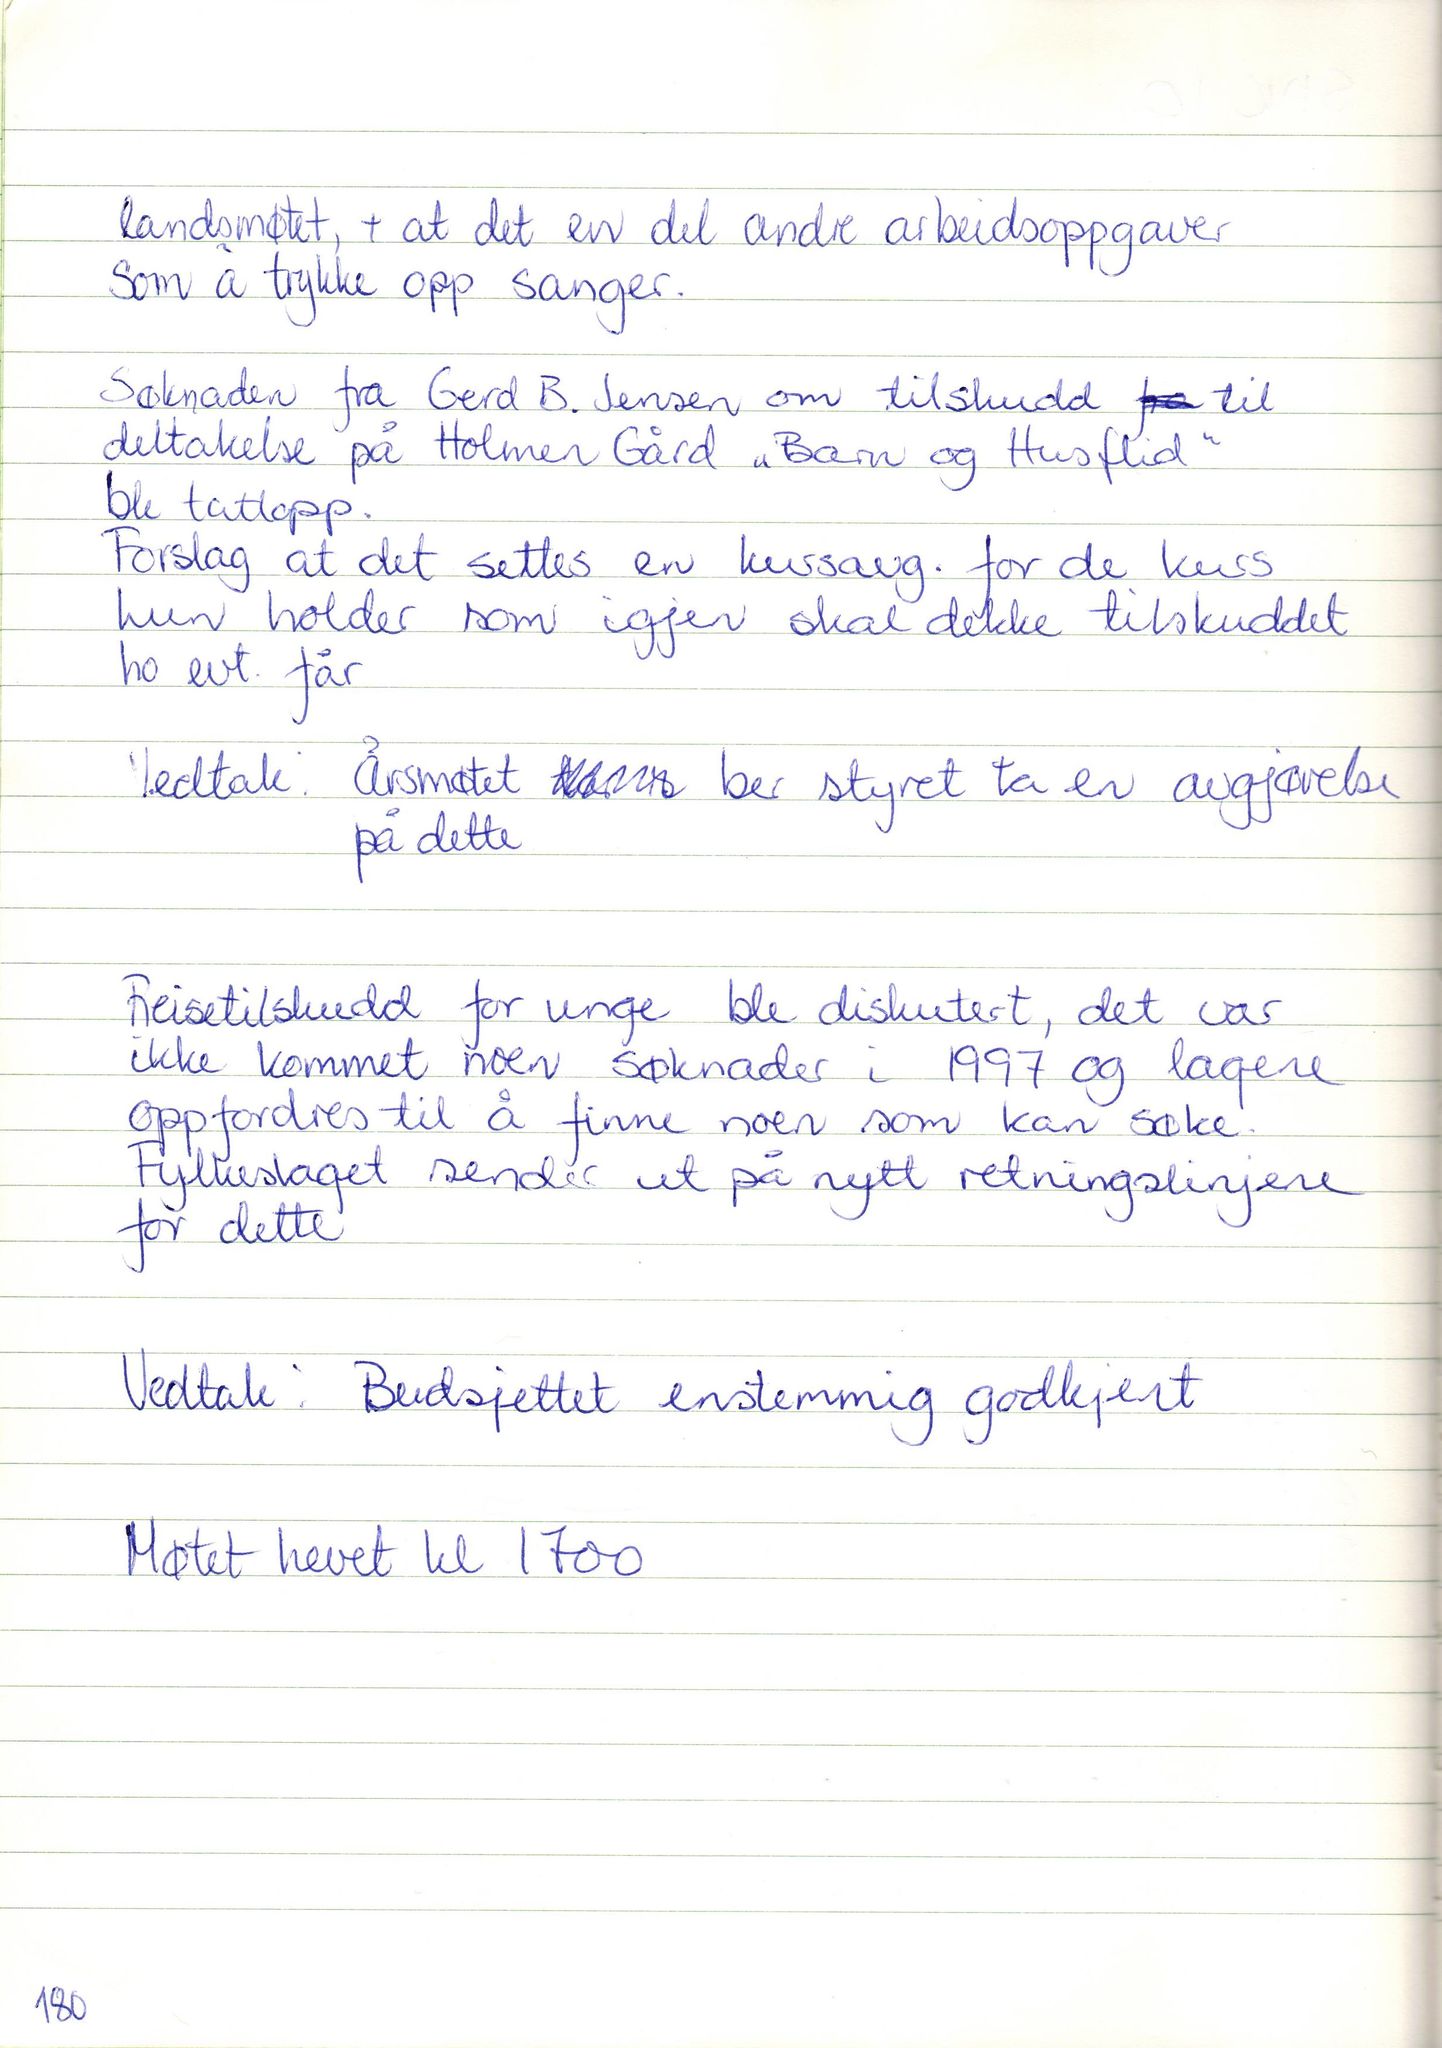 landsmøtet, + at det en del andre arbeidsoppgaver
som å trykke opp sanger.
Søknaden fra Gerd B. Jensen om tilskudd fra til
deltakelse på Holmen Gård „Barn og Husflid"
ble tatt opp.
Forslag at det settes en kursavg. for de kurs
hun holder som igjen skal dekke tilskuddet
ho evt. får
Vedtak: Årsmøtet ber styret ta en avgjørelse
på dette
Reisetilskudd for unge ble diskutert, det var
ikke kommet noen søknader i 1997 og lagene
oppfordres til å finne noen som kan søke.
Fylkeslaget sender ut på nytt retningslinjene
for dette
Vedtak: Budsjettet enstemmig godkjent
Møtet hevet kl 1700
180